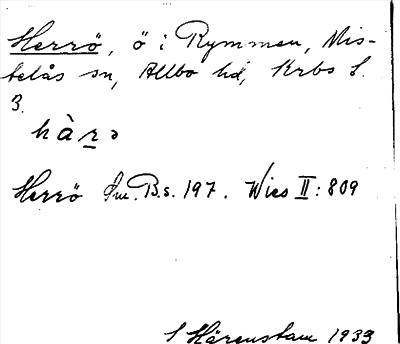 Herrö, ö i Rymmen, Mis-
telås sn, Allbo hd, Krbs l.
3.
hàrə
Herrö Sm. B.s. 197. Wies II: 809
S Härenstam 1933